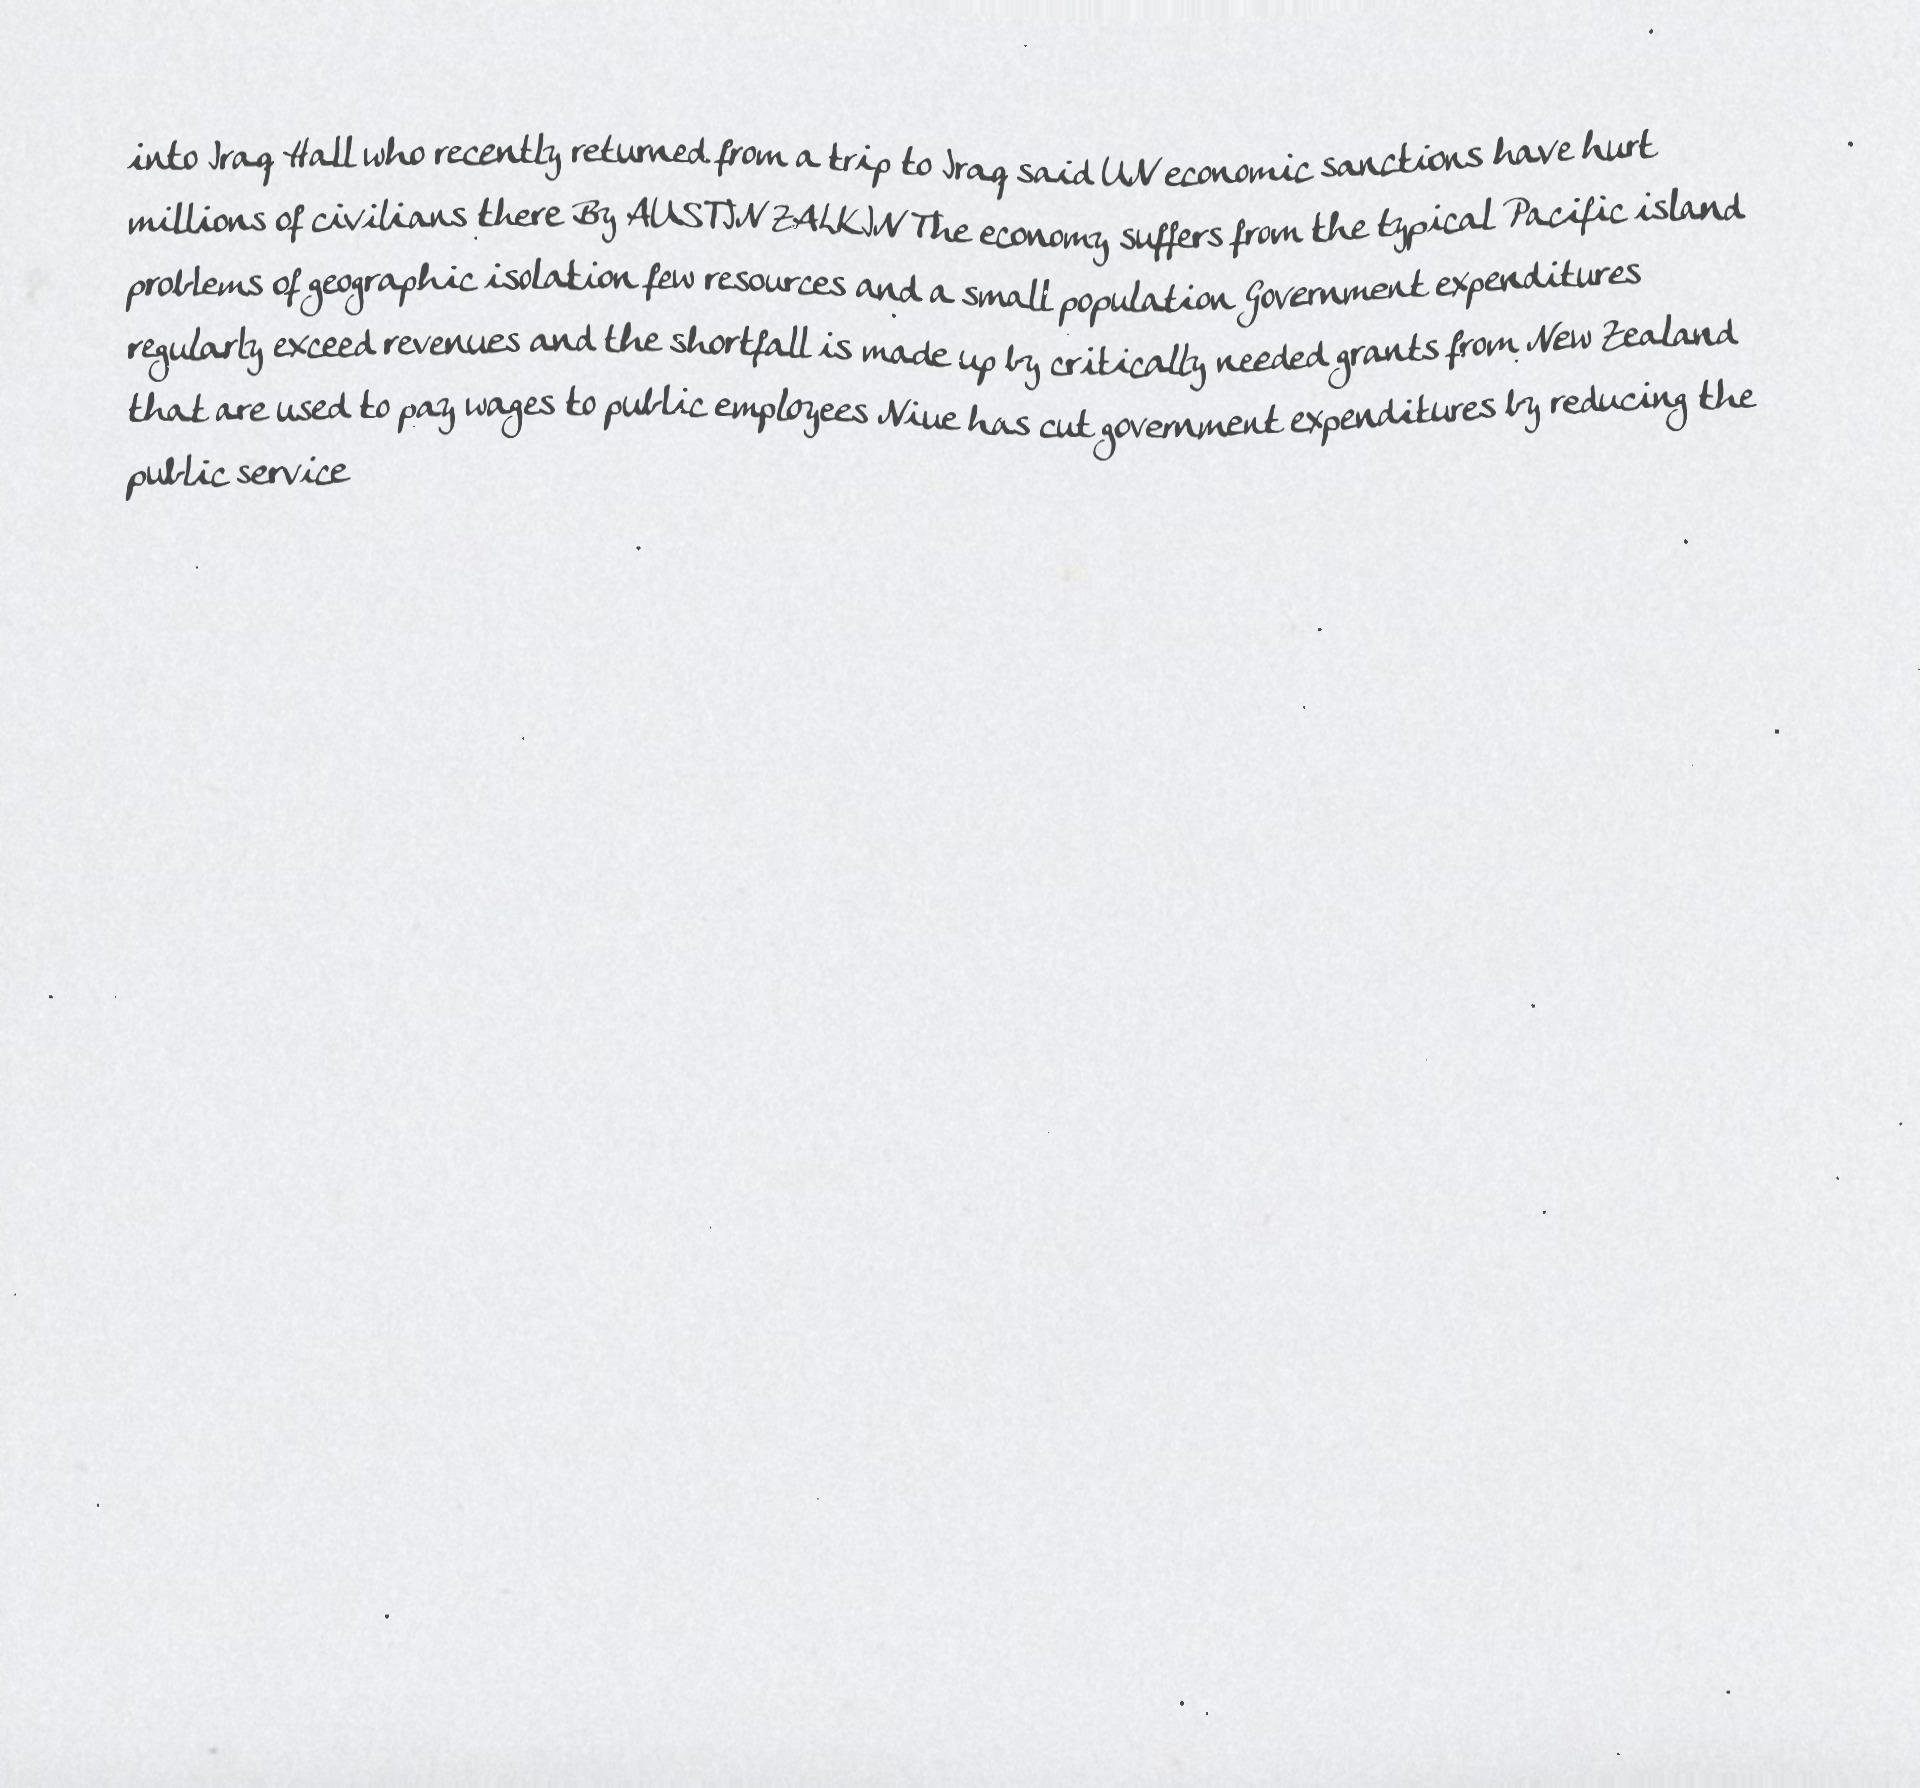 into Iraq Hall who recently returned from a trip to Iraq said UN economic sanctions have hurt
millions of civilians there By AUSTIN ZALKIN The economy suffers from the typical Pacific island
problems of geographic isolation few resources and a small population Government expenditures
regularly exceed revenues and the shortfall is made up by critically needed grants from New Zealand
that are used to pay wages to public employees Niue has cut government expenditures by reducing the
public service